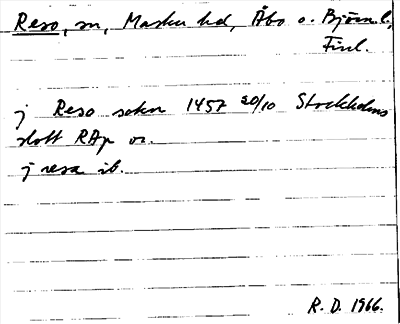 Reso, sn, Masku hd, Åbo o. Björneb. l.,
Finl.
j Reso sokn 1457 20/10 Stockholms
slott RAp or.
j resa ib.
R. D. 1966.